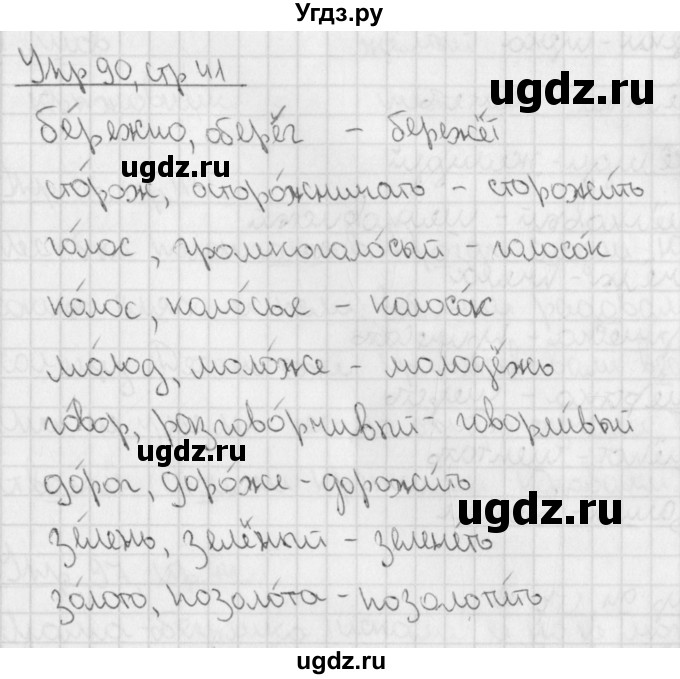 Угдз.ру
Упр 90, стр 41
ugdz.ru
бе́режно, оберёг – бережёт
ugdz.ru
сто́рож, осторо́жничать – сторожи́ть
го́лос, громкоголо́сый – голосо́к
ко́лос, коло́сья – колосо́к
мо́лод, моло́же – молодёжь
го́вор, разгово́рчивый – говорли́вый
ugdz.ru
до́рог, доро́же – дорожи́ть
ugdz.ru
зе́лень, зелёный – зелене́ть
зо́лото, позоло́та – позолоти́ть
ugdz.ru